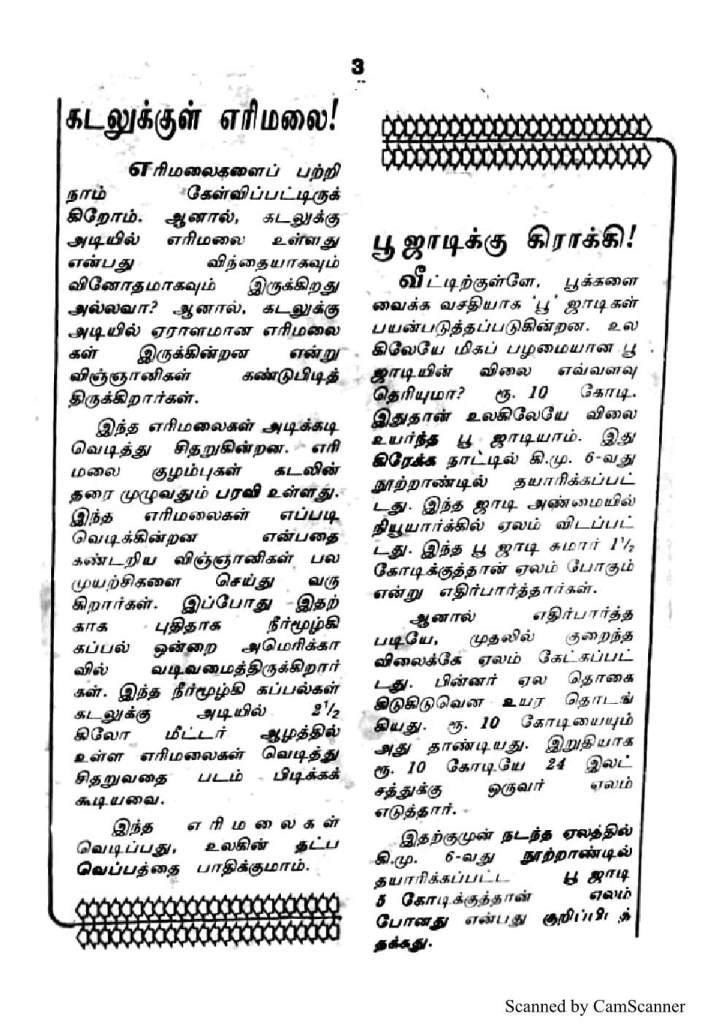 3
கடலுக்குள் எரிமலை!
எரிமலைகளைப் பற்றி
நாம் கேள்விப்பட்டிருக்
கிறோம். ஆனால், கடலுக்கு
அடியில் எரிமலை உள்ளது
என்பது விந்தையாகவும்
வினோதமாகவும் இருக்கிறது
அல்லவா? ஆனால், கடலுக்கு
அடியில் ஏராளமான எரிமலை
கள் இருக்கின்றன என்று
விஞ்ஞானிகள் கண்டுபிடித்
திருக்கிறார்கள்.
இந்த எரிமலைகள் அடிக்கடி
வெடித்து சிதறுகின்றன. எரி
மலை குழம்புகள் கடலின்
தரை முழுவதும் பரவி உள்ளது.
இந்த எரிமலைகள் எப்படி
வெடிக்கின்றன என்பதை
கண்டறிய விஞ்ஞானிகள் பல
முயற்சிகளை செய்து வரு
கிறார்கள். இப்போது இதற்
காக புதிதாக நீர்மூழ்கி
கப்பல் ஒன்றை அமெரிக்கா
வில் வடிவமைத்திருக்கிறார்
கள். இந்த நீர்மூழ்கி கப்பல்கள்
கடலுக்கு அடியில் 2½
கிலோ மீட்டர் ஆழத்தில்
உள்ள எரிமலைகள் வெடித்து
சிதறுவதை படம் பிடிக்கக்
கூடியவை.
இந்த எரிமலைகள்
வெடிப்பது, உலகின் தட்ப
வெப்பத்தை பாதிக்குமாம்.
பூ ஜாடிக்கு கிராக்கி!
வீட்டிற்குள்ளே, பூக்களை
வைக்க வசதியாக 'பூ' ஜாடிகள்
பயன்படுத்தப்படுகின்றன. உல
கிலேயே மிகப் பழமையான பூ
ஜாடியின் விலை எவ்வளவு
தெரியுமா? ரூ. 10 கோடி.
இதுதான் உலகிலேயே விலை
உயர்ந்த பூ ஜாடியாம். இது
கிரேக்க நாட்டில் கி.மு. 6-வது
நூற்றாண்டில் தயாரிக்கப்பட்
டது. இந்த ஜாடி அண்மையில்
நியூயார்க்கில் ஏலம் விடப்பட்
டது. இந்த பூ ஜாடி சுமார் 1½
கோடிக்குத்தான் ஏலம் போகும்
என்று எதிர்பார்த்தார்கள்.
ஆனால் எதிர்பார்த்த
படியே, முதலில் குறைந்த
விலைக்கே ஏலம் கேட்கப்பட்
டது. பின்னர் ஏல தொகை
கிடுகிடுவென உயர தொடங்
கியது. ரூ. 10 கோடியையும்
அது தாண்டியது. இறுதியாக
ரூ. 10 கோடியே 24 இலட்
சத்துக்கு ஒருவர் ஏலம்
எடுத்தார்.
இதற்குமுன் நடந்த ஏலத்தில்
கி.மு. 6-வது நூற்றாண்டில்
தயாரிக்கப்பட்ட பூ ஜாடி
5 கோடிக்குத்தான் ஏலம்
போனது என்பது குறிப்பிடத்
தக்கது.
Scanned by CamScanner